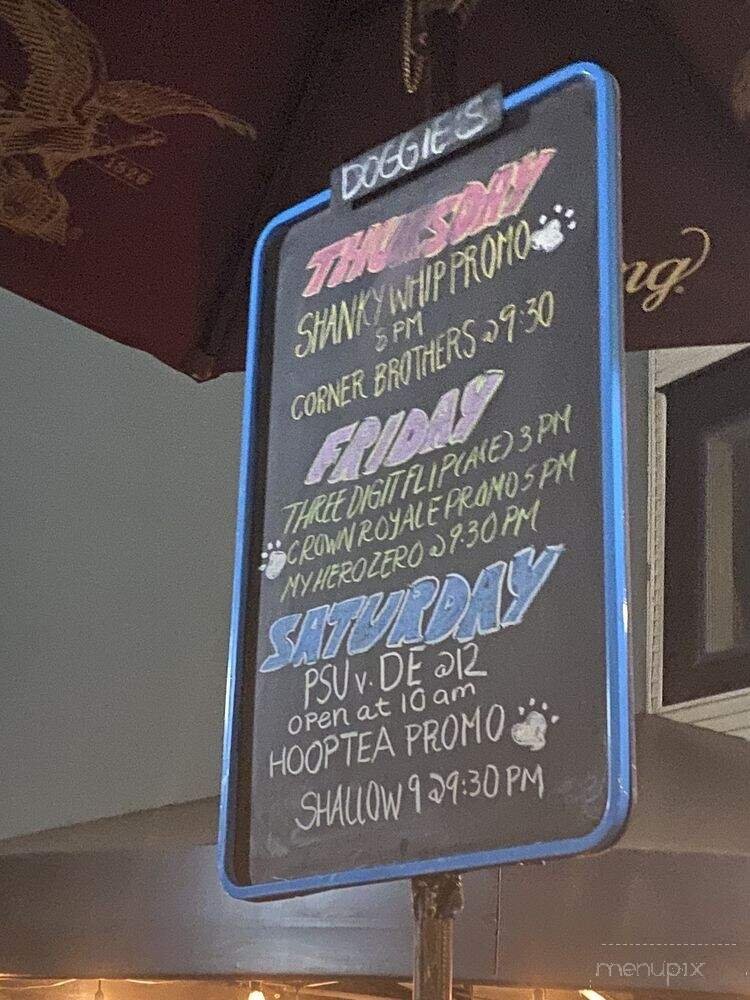 1829
ng.
DOGGIE'S
THURSDAY
SHANKY WHIP PROMO
5 PM
CORNER BROTHERS @ 9:30
FRIDAY
THREE DIGIT FLIP 3 PM
CROWN ROYALE PROMO 5 PM
MY HERO ZERO @ 9:30 PM
SATURDAY
PSU v. DE @12
open at 10 am
HOOPTEA PROMO
SHALLOW 9 @ 9:30 PM
menupix